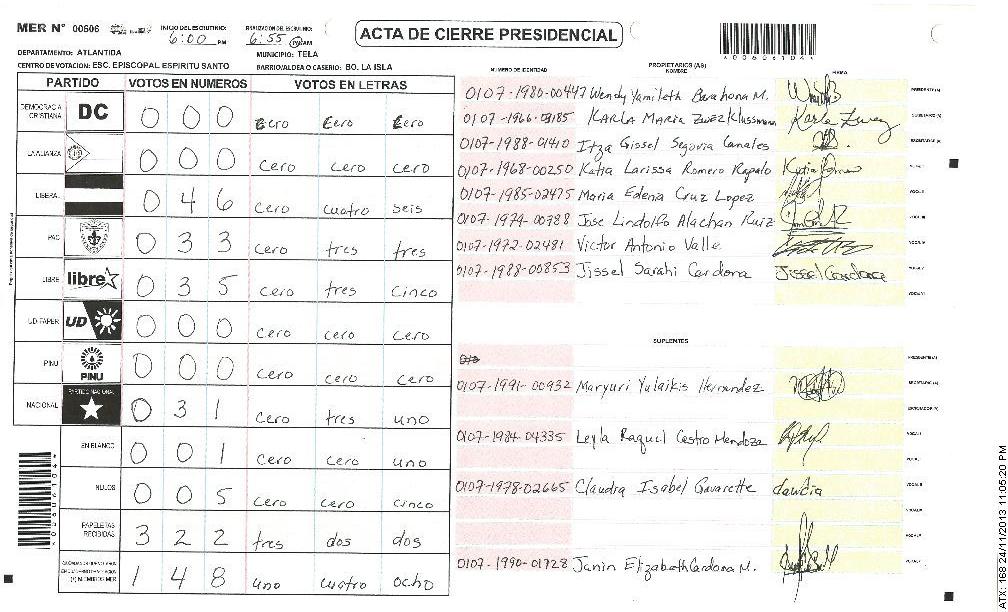 MER N° 00606
INICIO DEL ESCRUTINIO: 6:00 PM
FINALIZACION DEL ESCRUTINIO: 6:55 PM AM
ACTA DE CIERRE PRESIDENCIAL
*00606104*
DEPARTAMENTO: ATLANTIDA
MUNICIPIO: TELA
CENTRO DE VOTACION: ESC. EPISCOPAL ESPIRITU SANTO
BARRIO/ALDEA O CASERIO: BO. LA ISLA
PARTIDO VOTOS EN NUMEROS VOTOS EN LETRAS
DEMOCRACIA CRISTIANA DC 0 0 0 cero cero cero
LA ALIANZA 0 0 0 cero cero cero
LIBERAL 0 4 6 cero cuatro seis
PAC 0 3 3 cero tres tres
LIBRE libre 0 3 5 cero tres cinco
UD FAPER UD 0 0 0 cero cero cero
PINU PINU 0 0 0 cero cero cero
NACIONAL PARTIDO NACIONAL 0 3 1 cero tres uno
EN BLANCO 0 0 1 cero cero uno
NULOS 0 0 5 cero cero cinco
PAPELETAS RECIBIDAS 3 2 2 tres dos dos
1 4 8 uno cuatro ocho
*00606104*
NUMERO DE IDENTIDAD PROPIETARIOS (AS) NOMBRE FIRMA
0107-1980-00447 Wendy Yamileth Barahona M. PRESIDENTE (A)
0107-1966-00185 KARLA MARIA ZUNEZ Klussmann SECRETARIO (A)
0107-1988-01410 Itza Gissel Segovia Canales ESCRUTADOR (A)
0107-1968-00250 Katia Larissa Romero Rapalo VOCAL I
0107-1985-02475 Maria Edenia Cruz Lopez VOCAL II
0107-1974-00788 Jose Lindolfo Alachan Ruiz VOCAL III
0107-1972-02481 Victor Antonio Valle VOCAL IV
0107-1988-00853 Jissel Sarahi Cardona Jissel Cardona VOCAL V
VOCAL VI
SUPLENTES
PRESIDENTE (A)
0107-1991-00932 Maryuri Yulaikis Hernandez SECRETARIO (A)
ESCRUTADOR (A)
0107-1984-04335 Leyla Raquel Castro Mendoza VOCAL I
0107-1978-02665 Claudia Isabel Gavarette claudia
0107-1990-01728 Janin Elizabeth Cardona M.
ATX: 168 24/11/2013 11:05:20 PM